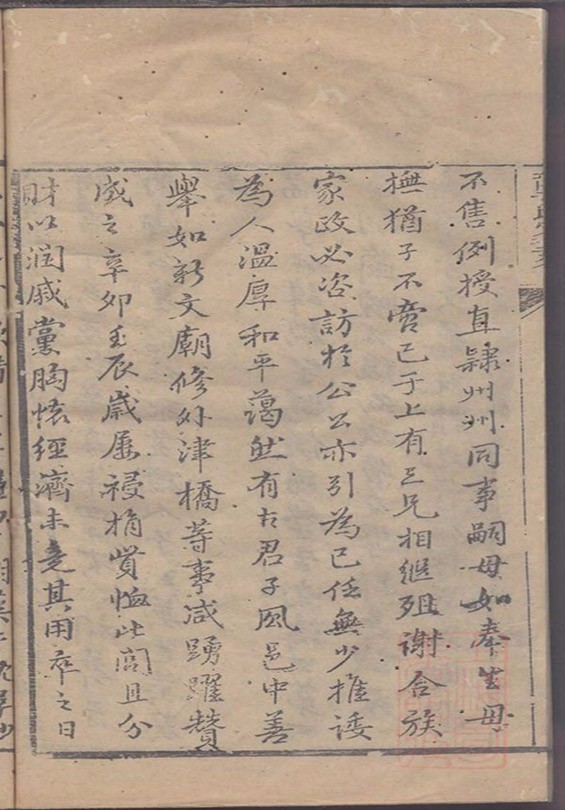 不售例授直隸州州同事嗣母如奉生母
撫猶子不啻己子上有三兄相繼殂謝合族
家政必咨訪於公公亦引為己任無少推諉
為人溫厚和平藹然有古君子風邑中善
舉如新文廟修外津橋等事咸踴躍贊
成之辛卯壬辰歲屢祲捐貲恤此閭且分
財以潤戚黨胸懷經濟未竟其用卒之日